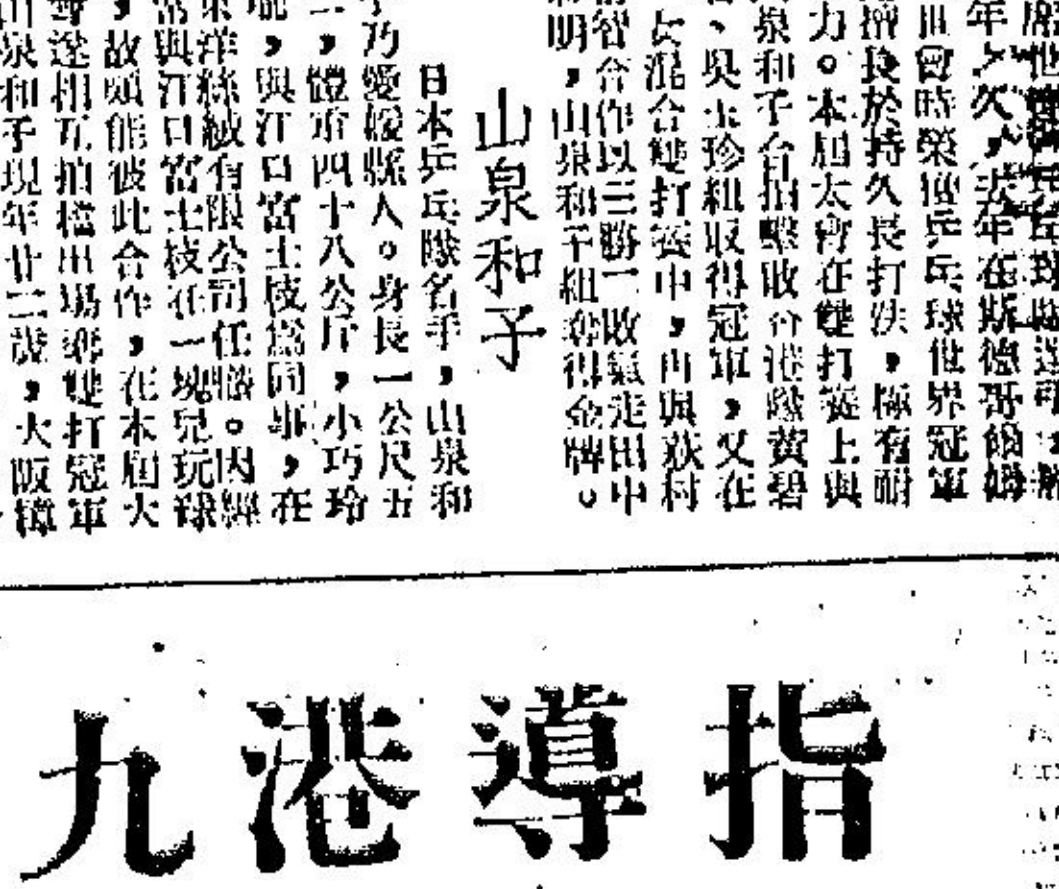 年之久，去年在斯德哥爾姆
世會時榮獲乒乓球世界冠軍
擅長於持久長打法，極有耐
力。本屆大會在雙打賽上與
泉和子合拍擊敗香港隊黃碧
、吳玉珍組取得冠軍，又在
女混合雙打賽中，再與荻村
智合作以三勝一敗氣走田中
明，山泉和子組奪得金牌。
山泉和子
日本乒乓隊名手，山泉和
子乃愛媛縣人。身長一公尺五
二，體重四十八公斤，小巧玲
瓏，與江口富士枝為同事，在
東洋絲絨有限公司任職。因經
常與江口富士枝在一塊兒玩球
，故頗能彼此合作，在本屆大
會遂相互拍檔出場奪雙打冠軍
山泉和子現年廿二歲，大阪樟
指導港九